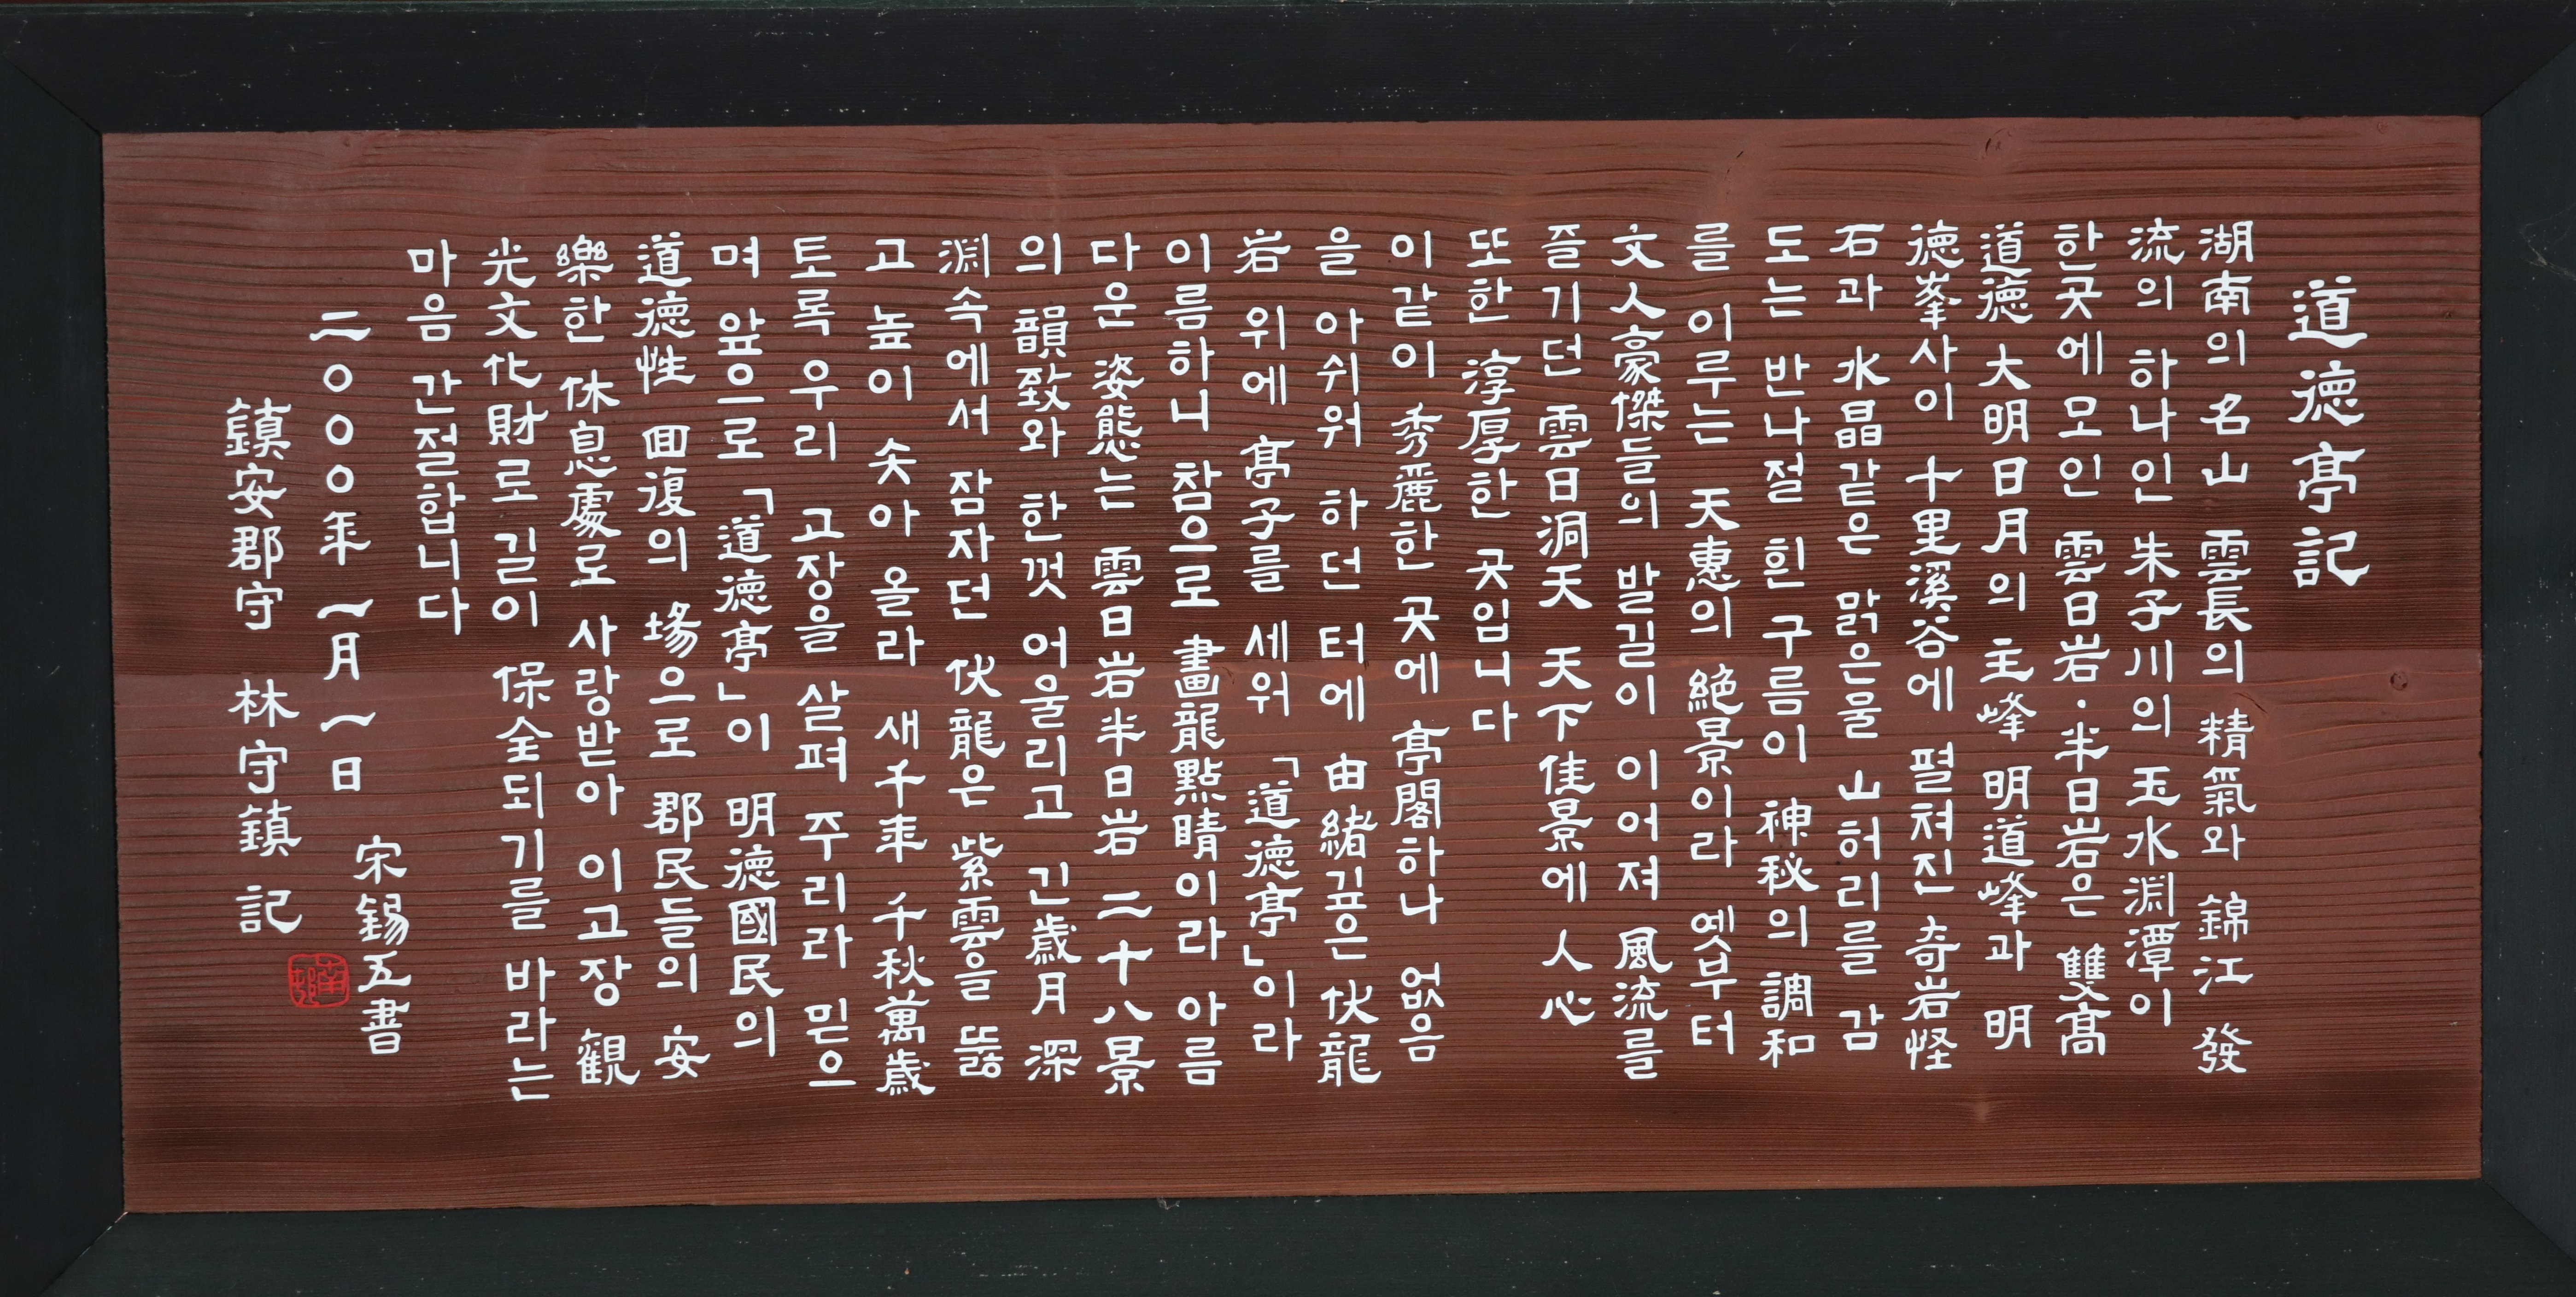 道德亭記
湖南의 名山 雲長의 精氣와 錦江 發
流의 하나인 朱子川의 玉水淵潭이
한곳에 모인 雲日岩·半日岩은 雙髙
道德 大明日月의 主峰 明道峰과 明
德峯사이 十里溪谷에 펼쳐진 奇岩怪
石과 水晶같은 맑은물 山허리를 감
도는 반나절 흰구름이 神秘의 調和
를 이루는 天惠의 絶景이라 옛부터
文人豪傑들의 발길이 이어져 風流를
즐기던 雲日洞天 天下佳景에 人心
또한 淳厚한 곳입니다
이같이 秀麗한 곳에 亭閣하나 없음
을 아쉬워 하던 터에 由緖깊은 伏龍
岩 위에 亭子를 세워 「道德亭」이라
이름하니 참으로 畵龍點睛이라 아름
다운 姿態는 雲日岩半日岩 二十八景
의 韻致와 한껏 어울리고 긴歲月 深
淵속에서 잠자던 伏龍은 紫雲을 뚫
고 높이 솟아 올라 새千年 千秋萬歲
토록 우리 고장을 살펴 주리라 믿으
며 앞으로 「道德亭」이 明德國民의
道德性 回復의 場으로 郡民들의 安
樂한 休息處로 사랑받아 이고장 觀
光文化財로 길이 保全되기를 바라는
마음 간절합니다
二〇〇〇年 一月 一日 宋錫五書
鎮安郡守 林守鎮 記